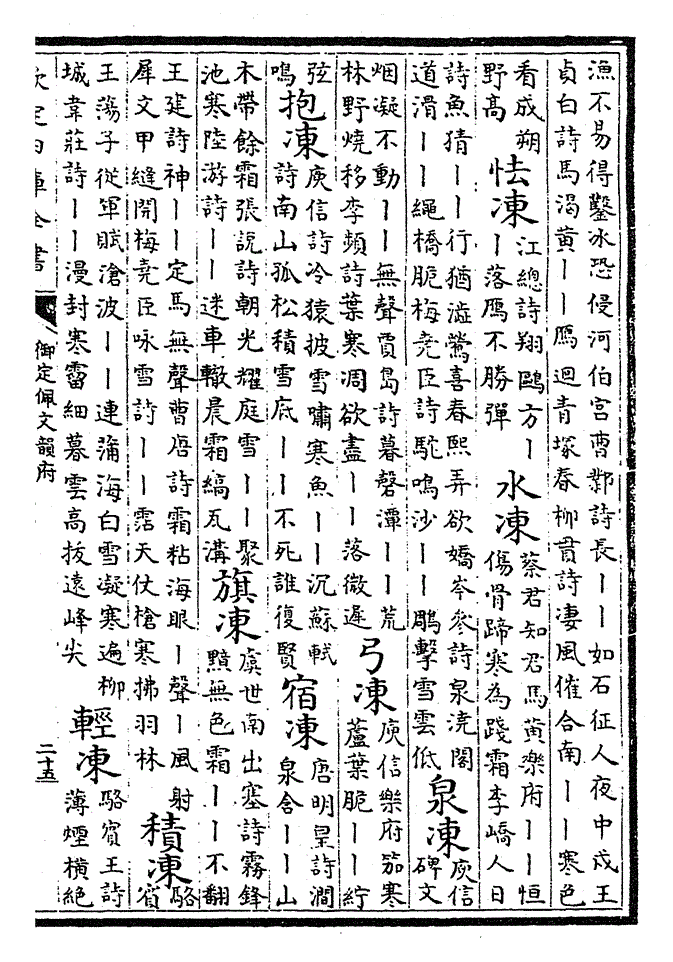 漁不易得鑿冰恐侵河伯宮曹鄴詩長――如石征人夜中戍王
貞白詩馬渴黄――鴈迴青塚春栁貫詩淒風催合南――寒色
看成朔
野髙
怯凍
江總詩翔鷗方―
―落鴈不勝彈
水凍
蔡君知君馬黄樂府――恒
傷骨蹄寒為踐霜李嶠人日
詩魚猜――行猶澁鶯喜春熙弄欲嬌岑參詩泉澆閣
道滑――繩橋脆梅堯臣詩駝鳴沙――鵰擊雪雲低
泉凍
庾信
碑文
烟凝不動――無聲賈島詩暮磬潭――荒
林野燒移李頻詩葉寒凋欲盡――落微遲
弓凍
庾信樂府笳寒
蘆葉脆――紵
弦
鳴
抱凍
庾信詩冷猿披雪嘯寒魚――沉蘇軾
詩南山孤松積雪底――不死誰復賢
宿凍
唐明皇詩澗
泉含――山
木帶餘霜張說詩朝光耀庭雪――聚
池寒陸游詩――迷車轍晨霜縞瓦溝
旗凍
虞世南出塞詩霧鋒
黯無色霜――不翻
王建詩神――定馬無聲曹唐詩霜粘海眼―聲―風射
犀文甲縫開梅堯臣咏雪詩――霑天仗槍寒拂羽林
積凍
駱
賓
王蕩子從軍賦滄波――連蒲海白雪凝寒遍栁
城韋莊詩――漫封寒霤細暮雲高拔遠峰尖
輕凍
駱賓王詩
薄煙横絶
欽定四庫全書
御定佩文韻府
二十五